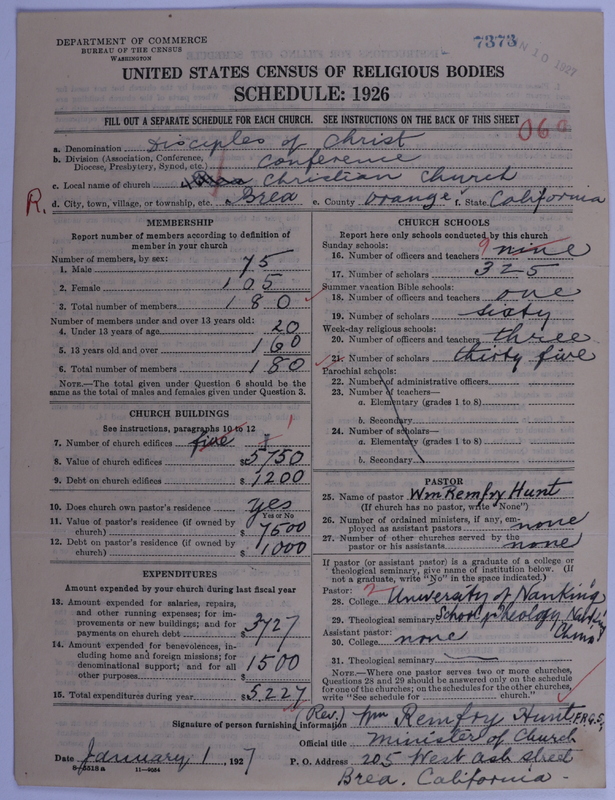 DEPARTMENT OF COMMERCE
BUREAU OF THE CENSUS
WASHINGTON
7373
JAN 10 1927
UNITED STATES CENSUS OF RELIGIOUS BODIES
SCHEDULE: 1926
FILL OUT A SEPARATE SCHEDULE FOR EACH CHURCH. SEE INSTRUCTIONS ON THE BACK OF THIS SHEET
060
a. Denomination Disciples of Christ
b. Division (Association, Conference, Diocese, Presbytery, Synod, etc.) Conference
c. Local name of church Christian Church
R.
d. City, town, village, or township, etc. Brea e. County Orange f. State California
MEMBERSHIP
Report number of members according to definition of member in your church
Number of members, by sex:
1. Male 75
2. Female 105
3. Total number of members 180
Number of members under and over 13 years old:
4. Under 13 years of age 20
5. 13 years old and over 160
6. Total number of members 180
NOTE.—The total given under Question 6 should be the same as the total of males and females given under Question 3.
CHURCH BUILDINGS
See instructions, paragraphs 10 to 12
7. Number of church edifices five 1
8. Value of church edifices $5750
9. Debt on church edifices $1200
10. Does church own pastor's residence yes
Yes or No
11. Value of pastor's residence (if owned by church) $7500
12. Debt on pastor's residence (if owned by church) $1000
EXPENDITURES
Amount expended by your church during last fiscal year
13. Amount expended for salaries, repairs, and other running expenses; for improvements or new buildings; and for payments on church debt $3727
14. Amount expended for benevolences, including home and foreign missions; for denominational support; and for all other purposes $1500
15. Total expenditures during year $5,227
CHURCH SCHOOLS
Report here only schools conducted by this church
Sunday schools:
16. Number of officers and teachers 9 nine
17. Number of scholars 325
Summer vacation Bible schools:
18. Number of officers and teachers one
19. Number of scholars sixty
Week-day religious schools:
20. Number of officers and teachers three
21. Number of scholars thirty five
Parochial schools:
22. Number of administrative officers
23. Number of teachers—
a. Elementary (grades 1 to 8)
b. Secondary
24. Number of scholars—
a. Elementary (grades 1 to 8)
b. Secondary
PASTOR
25. Name of pastor Wm Remfry Hunt
(If church has no pastor, write "None")
26. Number of ordained ministers, if any, employed as assistant pastors none
27. Number of other churches served by the pastor or his assistants none
If pastor (or assistant pastor) is a graduate of a college or theological seminary, give name of institution below. (If not a graduate, write "No" in the space indicated.)
Pastor: 2
28. College University of Nanking
29. Theological seminary School of Theology Nanking China
Assistant pastor:
30. College none
31. Theological seminary
NOTE.—Where one pastor serves two or more churches, Questions 28 and 29 should be answered only on the schedule for one of the churches; on the schedules for the other churches, write "See schedule for church."
Signature of person furnishing information (Rev.) Wm Remfry Hunt F.R.G.S.
Official title Minister of Church
Date January 1 1927 P. O. Address 205 West Ash Street
8-5518a 11-9064
Brea. California